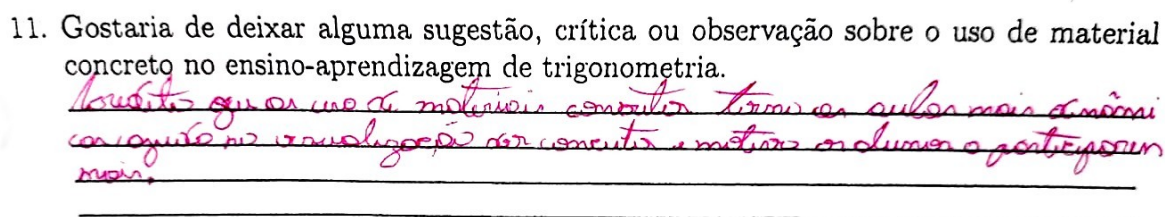 11. Gostaria de deixar alguma sugestão, crítica ou observação sobre o uso de material
concreto no ensino-aprendizagem de trigonometria.
Acredito que os uso de materiais concretos torna as aulas mais dinâmi
cas ajuda na visualização dos conceitos e motiva os alunos a participarem
mais.